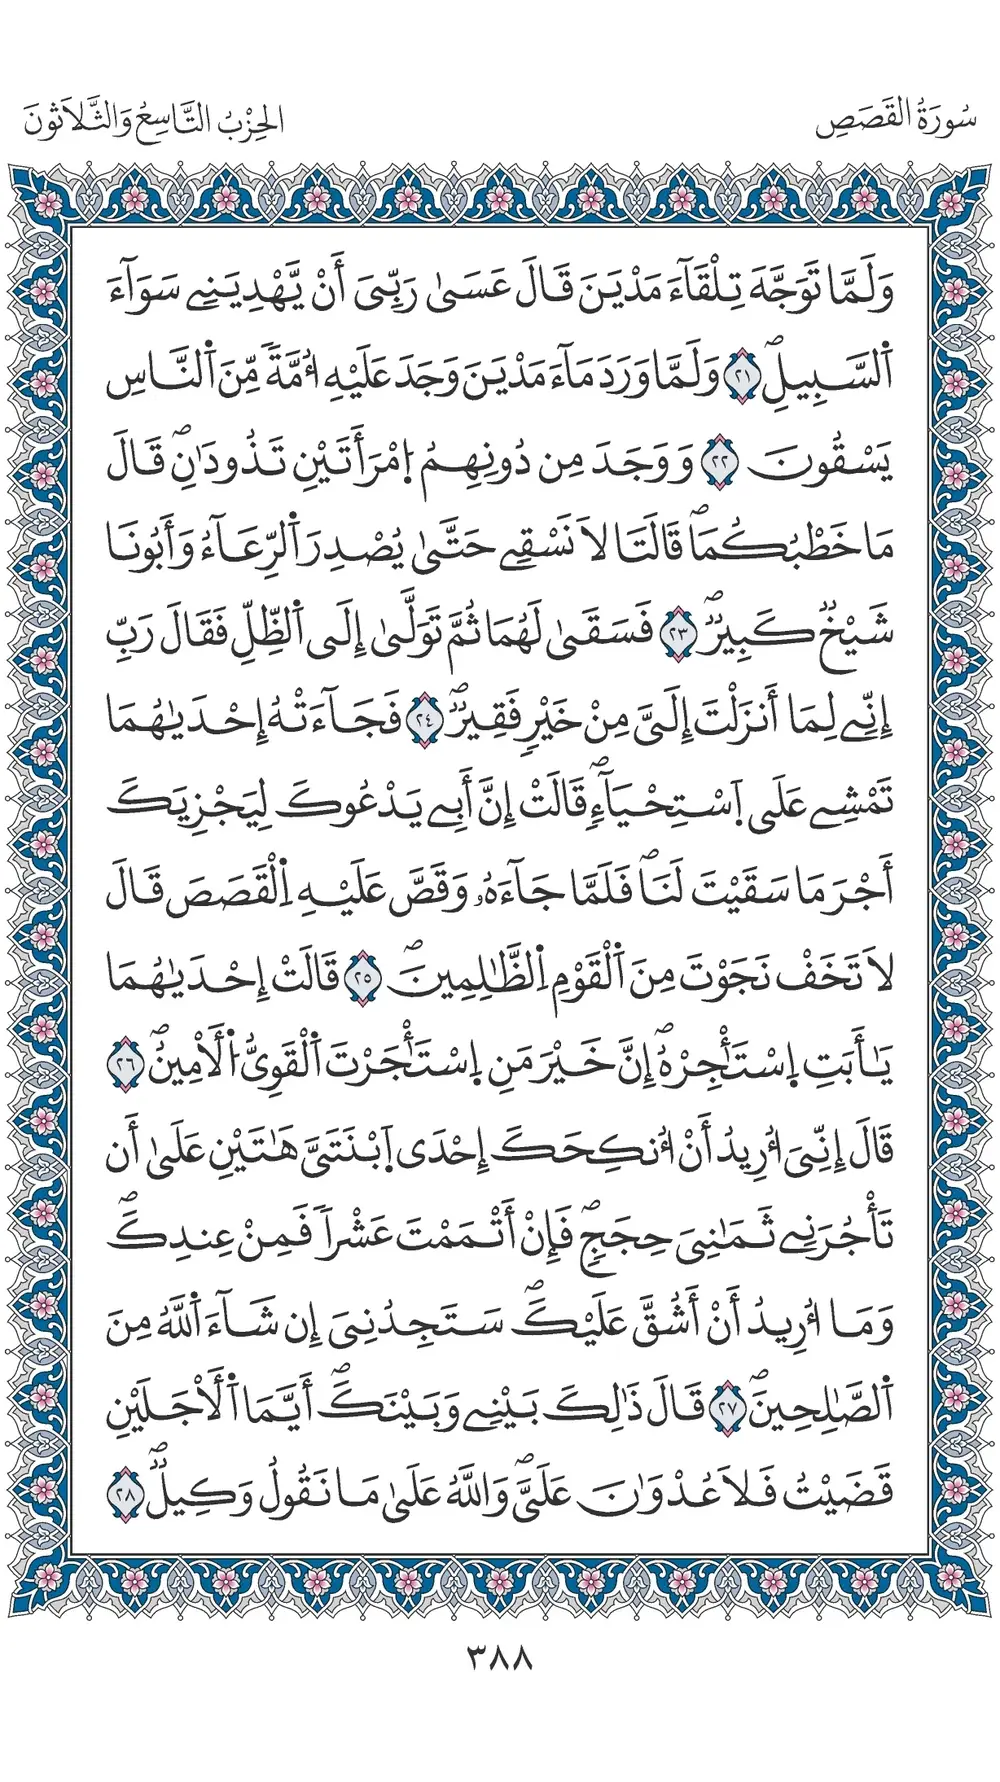 سُورَةُ القَصَصِ
الحِزْبُ التَّاسِعُ وَالثَّلَاثُونَ
وَلَمَّا تَوَجَّهَ تِلْقَآءَ مَدْيَنَ قَالَ عَسَىٰ رَبِّيَ أَنْ يَّهْدِيَنِے سَوَآءَ
اَ۬لسَّبِيلِۖ ٢١ وَلَمَّا وَرَدَ مَآءَ مَدْيَنَ وَجَدَ عَلَيْهِ أُمَّةٗ مِّنَ اَ۬لنَّاسِ
يَسْقُونَ ٢٢ وَوَجَدَ مِن دُونِهِمُ اُ۪مْرَأَتَيْنِ تَذُودَٰنِۖ قَالَ
مَا خَطْبُكُمَاۖ قَالَتَا لَا نَسْقِے حَتَّىٰ يُصْدِرَ اَ۬لرِّعَآءُ وَأَبُونَا
شَيْخٞ كَبِيرٞۖ ٢٣ فَسَقَىٰ لَهُمَا ثُمَّ تَوَلَّىٰ إِلَى اَ۬لظِّلِّ فَقَالَ رَبِّ
إِنِّے لِمَا أَنزَلْتَ إِلَيَّ مِنْ خَيْرٖ فَقِيرٞۖ ٢٤ فَجَآءَتْهُ إِحْدَيٰهُمَا
تَمْشِے عَلَى اَ۪سْتِحْيَآءٖۖ قَالَتْ إِنَّ أَبِے يَدْعُوكَ لِيَجْزِيَكَ
أَجْرَ مَا سَقَيْتَ لَنَاۖ فَلَمَّا جَآءَهُۥ وَقَصَّ عَلَيْهِ اِ۬لْقَصَصَ قَالَ
لَا تَخَفْ نَجَوْتَ مِنَ اَ۬لْقَوْمِ اِ۬لظَّٰلِمِينَۖ ٢٥ قَالَتْ إِحْدَيٰهُمَا
يَٰٓأَبَتِ اِ۪سْتَـْٔجِرْهُۖ إِنَّ خَيْرَ مَنِ اِ۪سْتَـْٔجَرْتَ اَ۬لْقَوِيُّ اُ۬لَامِينُۖ ٢٦
قَالَ إِنِّيَ أُرِيدُ أَنْ أُنكِحَكَ إِحْدَى اَ۪بْنَتَيَّ هَٰتَيْنِ عَلَىٰ أَن
تَأْجُرَنِے ثَمَٰنِيَ حِجَجٖۖ فَإِنْ أَتْمَمْتَ عَشْراٗ فَمِنْ عِندِكَۖ
وَمَا أُرِيدُ أَنْ أَشُقَّ عَلَيْكَۖ سَتَجِدُنِيَ إِن شَآءَ اَ۬للَّهُ مِنَ
اَ۬لصَّٰلِحِينَۖ ٢٧ قَالَ ذَٰلِكَ بَيْنِے وَبَيْنَكَۖ أَيَّمَا اَ۬لَاجَلَيْنِ
قَضَيْتُ فَلَا عُدْوَٰنَ عَلَيَّۖ وَاللَّهُ عَلَىٰ مَا نَقُولُ وَكِيلٞۖ ٢٨
٣٨٨